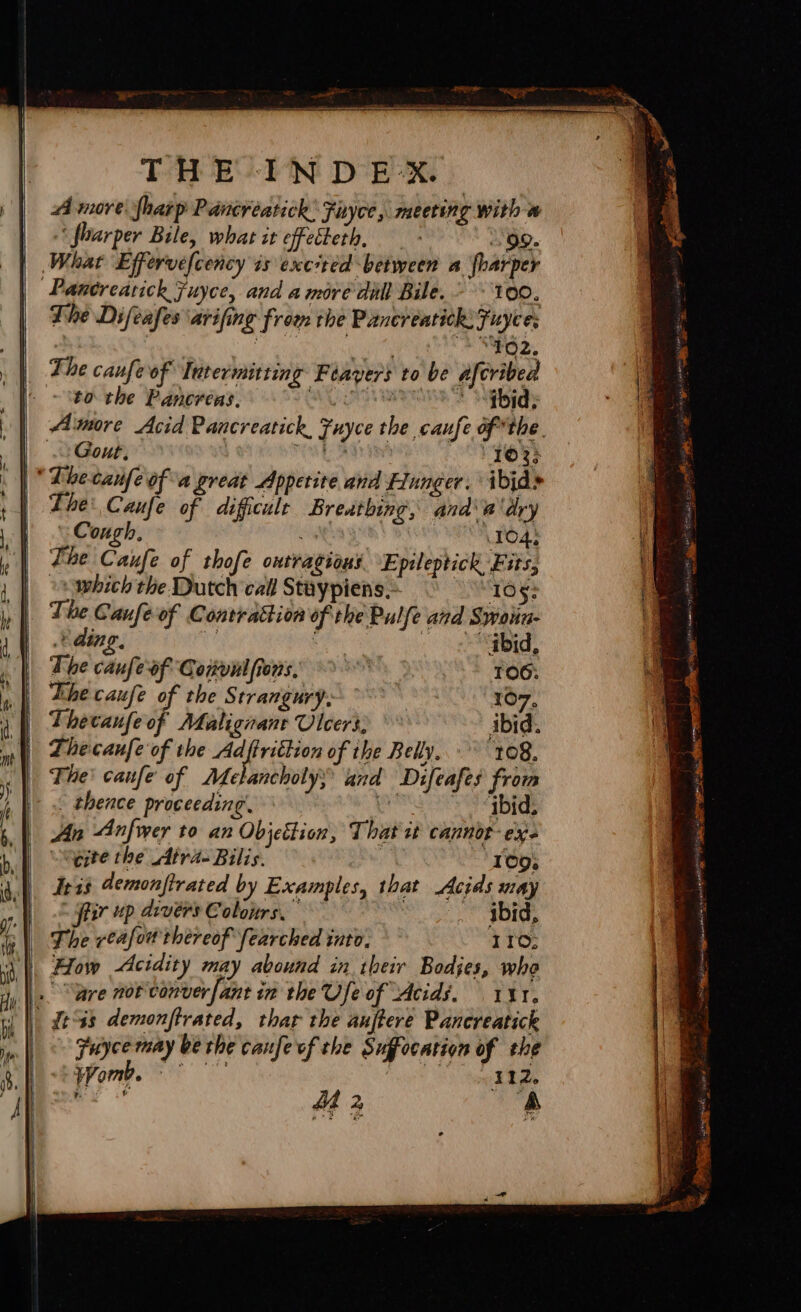 THE INDEX.
A more ſharp Pancreatick Juyce, meeting with a
ſharper Bile, what it effecteth. 99.
What Efferveſcency is excited between a ſharper
Pancreatick Juyce, and a more dull Bile. 100.
The Diſeaſes ariſing from the Pancreatick Juyce.
102.
The cauſe of Intermitting Feavers to be aſcribed
to the Pancreas. ibid.
A more Acid Pancreatick Juyce the cauſe of the
Gout. 103.
The cauſe of a great Appetite and Hunger. ibid.
The Cauſe of difficult Breathing, and a dry
Cough. 104.
The Cauſe of thoſe outragious Epileptick Fits,
which the Dutch call Stuypiens. 105.
The Cauſe of Contraction of the Pulſe and Swoun-
ding. ibid.
The cauſe of Convulſions. 106.
The cauſe of the Strangury. 107.
The cauſe of Malignant Ulcers. ibid.
The cauſe of the Adſtriction of the Belly. 108.
The cauſe of Melancholy, and Diſeaſes from
thence proceeding. ibid.
An Anſwer to an Objection, That it cannot ex-
cite the Atra-Bilis. 109.
It is demonſtrated by Examples, that Acids may
ſtir up divers Colours. ibid.
The reaſon thereof ſearched into. 110.
How Acidity may abound in their Bodies, who
are not converſant in the Uſe of Acids. 111.
It is demonſtrated, that the auſtere Pancreatick
Juyce may be the cauſe of the Suffocation of the
Womb. 112.
M 2 A